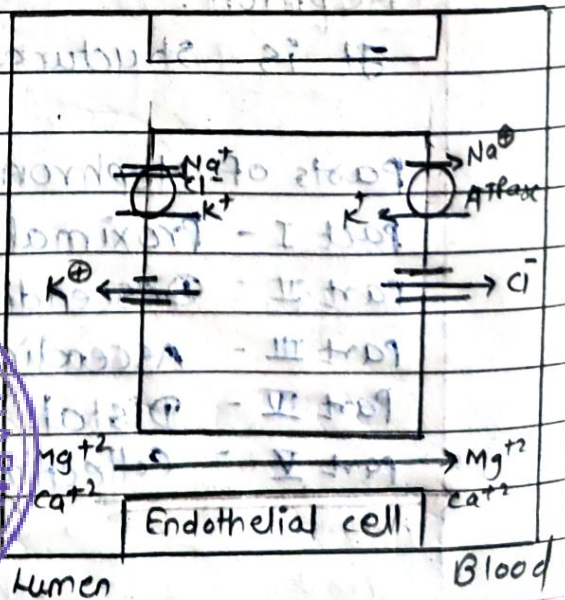 Na⁺ Na⊕
Cl⁻
K⁺ K⁺ ATPase
K⊕ Cl⁻
Mg⁺² Mg⁺²
Ca⁺² Ca⁺²
Endothelial cell
Lumen Blood